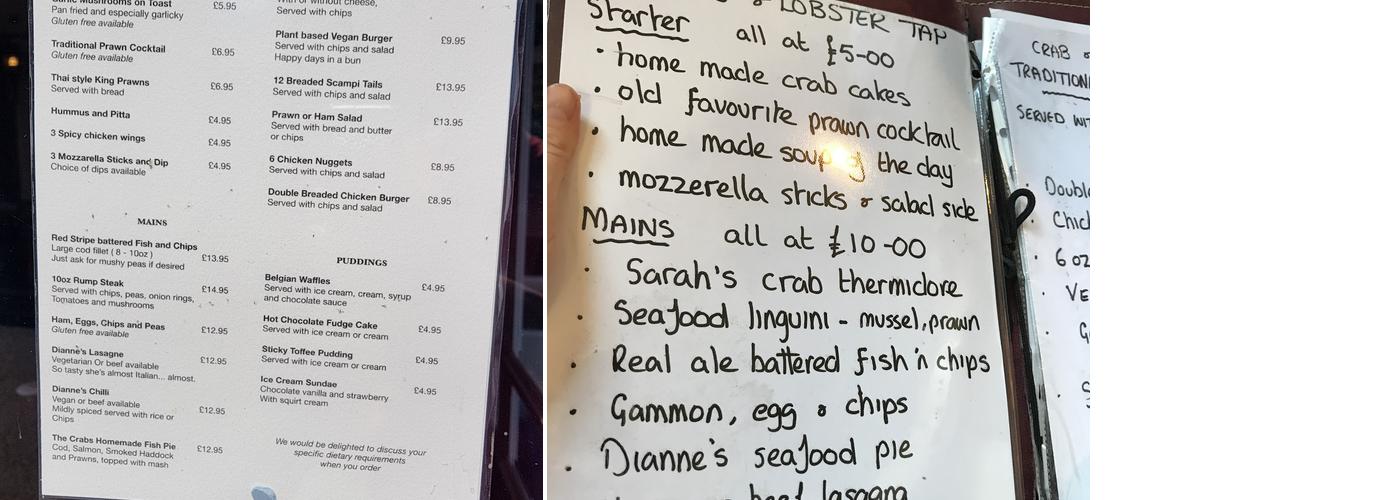 Garlic Mushrooms on Toast £5.95
Pan fried and especially garlicky
Gluten free available
Traditional Prawn Cocktail £6.95
Gluten free available
Thai style King Prawns £6.95
Served with bread
Hummus and Pitta £4.95
3 Spicy chicken wings £4.95
3 Mozzarella Sticks and Dip £4.95
Choice of dips available
MAINS
Red Stripe battered Fish and Chips £13.95
Large cod fillet ( 8 - 10oz )
Just ask for mushy peas if desired
10oz Rump Steak £14.95
Served with chips, peas, onion rings,
Tomatoes and mushrooms
Ham, Eggs, Chips and Peas £12.95
Gluten free available
Dianne's Lasagne £12.95
Vegetarian Or beef available
So tasty she's almost Italian... almost.
Dianne's Chilli £12.95
Vegan or beef available
Mildly spiced served with rice or
Chips
The Crabs Homemade Fish Pie £12.95
Cod, Salmon, Smoked Haddock
and Prawns, topped with mash
With or without cheese,
Served with chips
Plant based Vegan Burger £9.95
Served with chips and salad
Happy days in a bun
12 Breaded Scampi Tails £13.95
Served with chips and salad
Prawn or Ham Salad £13.95
Served with bread and butter
or chips
6 Chicken Nuggets £8.95
Served with chips and salad
Double Breaded Chicken Burger £8.95
Served with chips and salad
PUDDINGS
Belgian Waffles £4.95
Served with ice cream, cream, syrup
and chocolate sauce
Hot Chocolate Fudge Cake £4.95
Served with ice cream or cream
Sticky Toffee Pudding £4.95
Served with ice cream or cream
Ice Cream Sundae £4.95
Chocolate vanilla and strawberry
With squirt cream
We would be delighted to discuss your
specific dietary requirements
when you order
LOBSTER TAP
Starter all at £5-00
• home made crab cakes
• old favourite prawn cocktail
• home made soup of the day
• mozzerella sticks & salad side
MAINS all at £10-00
• Sarah's crab thermidore
• Seafood linguini - mussel, prawn
• Real ale battered fish 'n chips
• Gammon, egg & chips
• Dianne's seafood pie
beef lasagn
CRAB &
TRADITION
SERVED WIT
• Double
Chic
• 6 oz
• VE